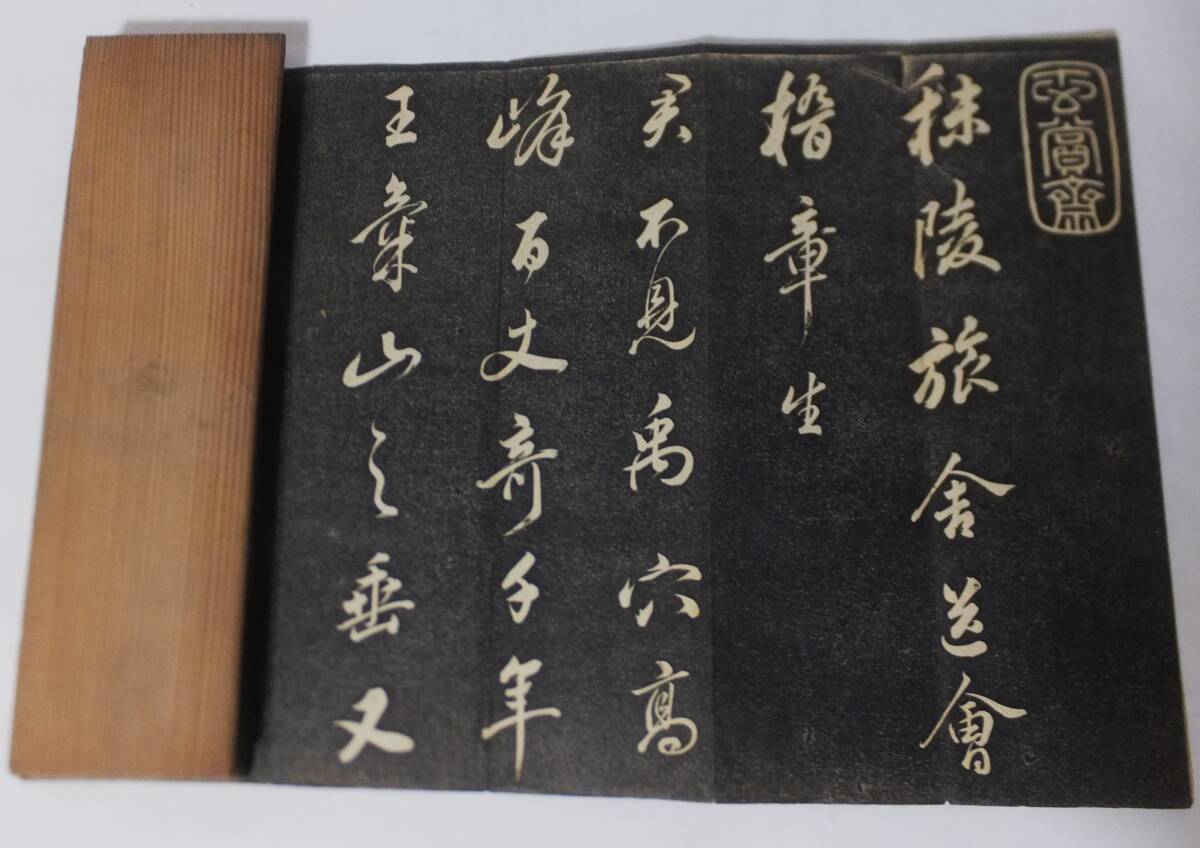 玄賞齋
秣陵旅舍送會
稽章生
君不見禹穴髙
峰百丈奇千年
王氣山之垂又